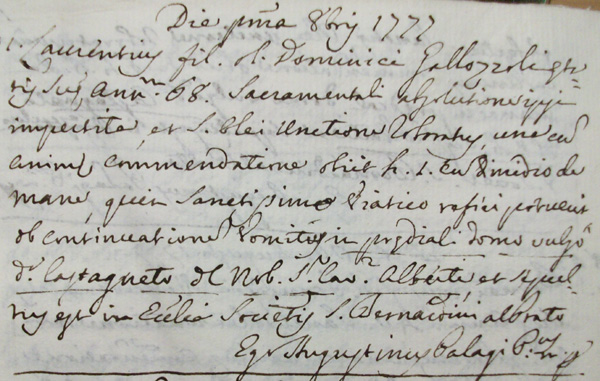 Die pma 8bris 1777
1. Laurentius fil. ol. Dominici Gallozzoli
annr. 68. Sacramentali absolutione ipi
impertita, et S. Olei Unctione roboratus, una cū
animę commendatione obiit h. 1. cū dimidio de
mane, quin Sanctissimo Viatico refici potuerit
ob continuatione Vomitus in prędiali domo vulgo
d.ª Castagneto del Nob. Sr. Cav.r Alberti, et sepul-
tus est in Ecclia Societis S. Bernardini
Ego Augustinus Palagi P.us